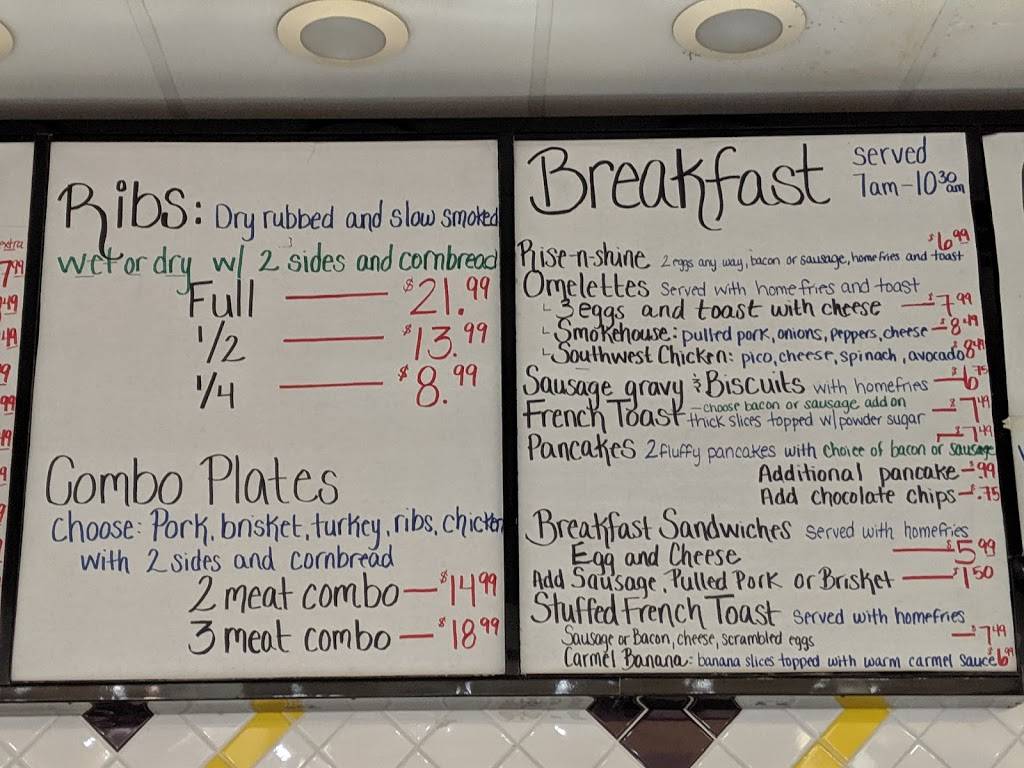 extra
7.49
Ribs: Dry rubbed and slow smoked
wet or dry w/ 2 sides and cornbread
Full — $21.99
1/2 — $13.99
1/4 — $8.99
Combo Plates
Choose: Pork, brisket, turkey, ribs, chicken
with 2 sides and cornbread
2 meat combo — $14.99
3 meat combo — $18.99
Breakfast served
7am-10:30am
$6.99
Rise-n-shine 2 eggs any way, bacon or sausage, homefries and toast
Omelettes served with homefries and toast
3 eggs and toast with cheese — $7.99
Smokehouse: pulled pork, onions, peppers, cheese — $8.49
Southwest Chicken: pico, cheese, spinach, avocado $8.49
Sausage gravy & Biscuits with homefries — $6.75
French Toast — choose bacon or sausage add on
thick slices topped w/ powder sugar — $7.49
— $7.49
Pancakes 2 fluffy pancakes with choice of bacon or sausage
Additional pancake — $.99
Add chocolate chips — $.75
Breakfast Sandwiches served with homefries
Egg and Cheese — $5.99
Add Sausage, Pulled Pork or Brisket — $1.50
Stuffed French Toast served with homefries
Sausage or Bacon, cheese, scrambled eggs — $7.49
Carmel Banana: banana slices topped with warm carmel sauce $6.99